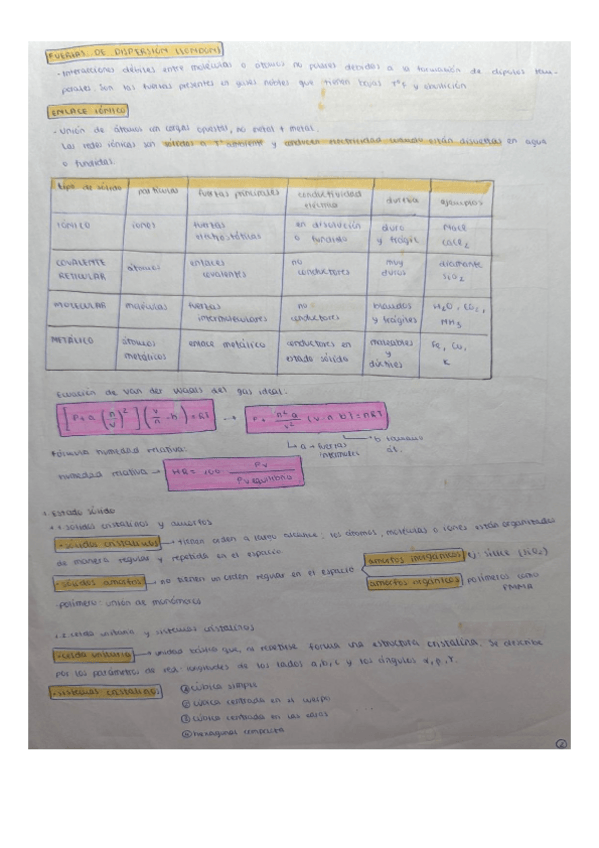 FUERZAS DE DISPERSIÓN (LONDON)
- Interacciones débiles entre moléculas o átomos no polares debidas a la formación de dipolos tem-
porales. Son las fuerzas presentes en gases nobles que tienen bajas Tª F y ebullición
ENLACE IÓNICO
- Unión de átomos con cargas opuestas, no metal + metal.
Las redes iónicas son sólidas a Tª ambiente y conducen electricidad cuando están disueltas en agua
o fundidas.
tipo de sólido partículas fuerzas principales conductividad eléctrica dureza ejemplos
IÓNICO iones fuerzas electrostáticas en disolución o fundido duro y frágil NaCl CaCl2
COVALENTE RETICULAR átomos enlaces covalentes no conductores muy duros diamante SiO2
MOLECULAR moléculas fuerzas intermoleculares no conductores blandos y frágiles H2O, CO2, NH3
METÁLICO átomos metálicos enlace metálico conductores en estado sólido maleables y dúctiles Fe, Cu,
Ecuación de van der Waals del gas ideal:
[P+a (n/v)²] (v/n - b) = RT → P + n²a/v² (v - n b) = nRT
a → fuerzas
Fórmula humedad relativa:
humedad relativa → HR = 100 Pv / Pv equilibrio
1. Estado sólido
1.1 sólidos cristalinos y amorfos
- sólidos cristalinos → tienen orden a largo alcance; los átomos, moléculas o iones están organizados
de manera regular y repetida en el espacio
- sólidos amorfos → no tienen un orden regular en el espacio
amorfos inorgánicos sílice (SiO2)
amorfos orgánicos polímeros como PMMA
polímero: unión de monómeros
1.2 celda unitaria y sistemas cristalinos
- celda unitaria → unidad básica que, al repetirse forma una estructura cristalina. Se describe
por los parámetros de red: longitudes de los lados a, b, c y los ángulos α, β, γ.
- sistemas cristalinos:
① cúbica simple
② cúbica centrada en el cuerpo
③ cúbica centrada en las caras
④ hexagonal compacta
②